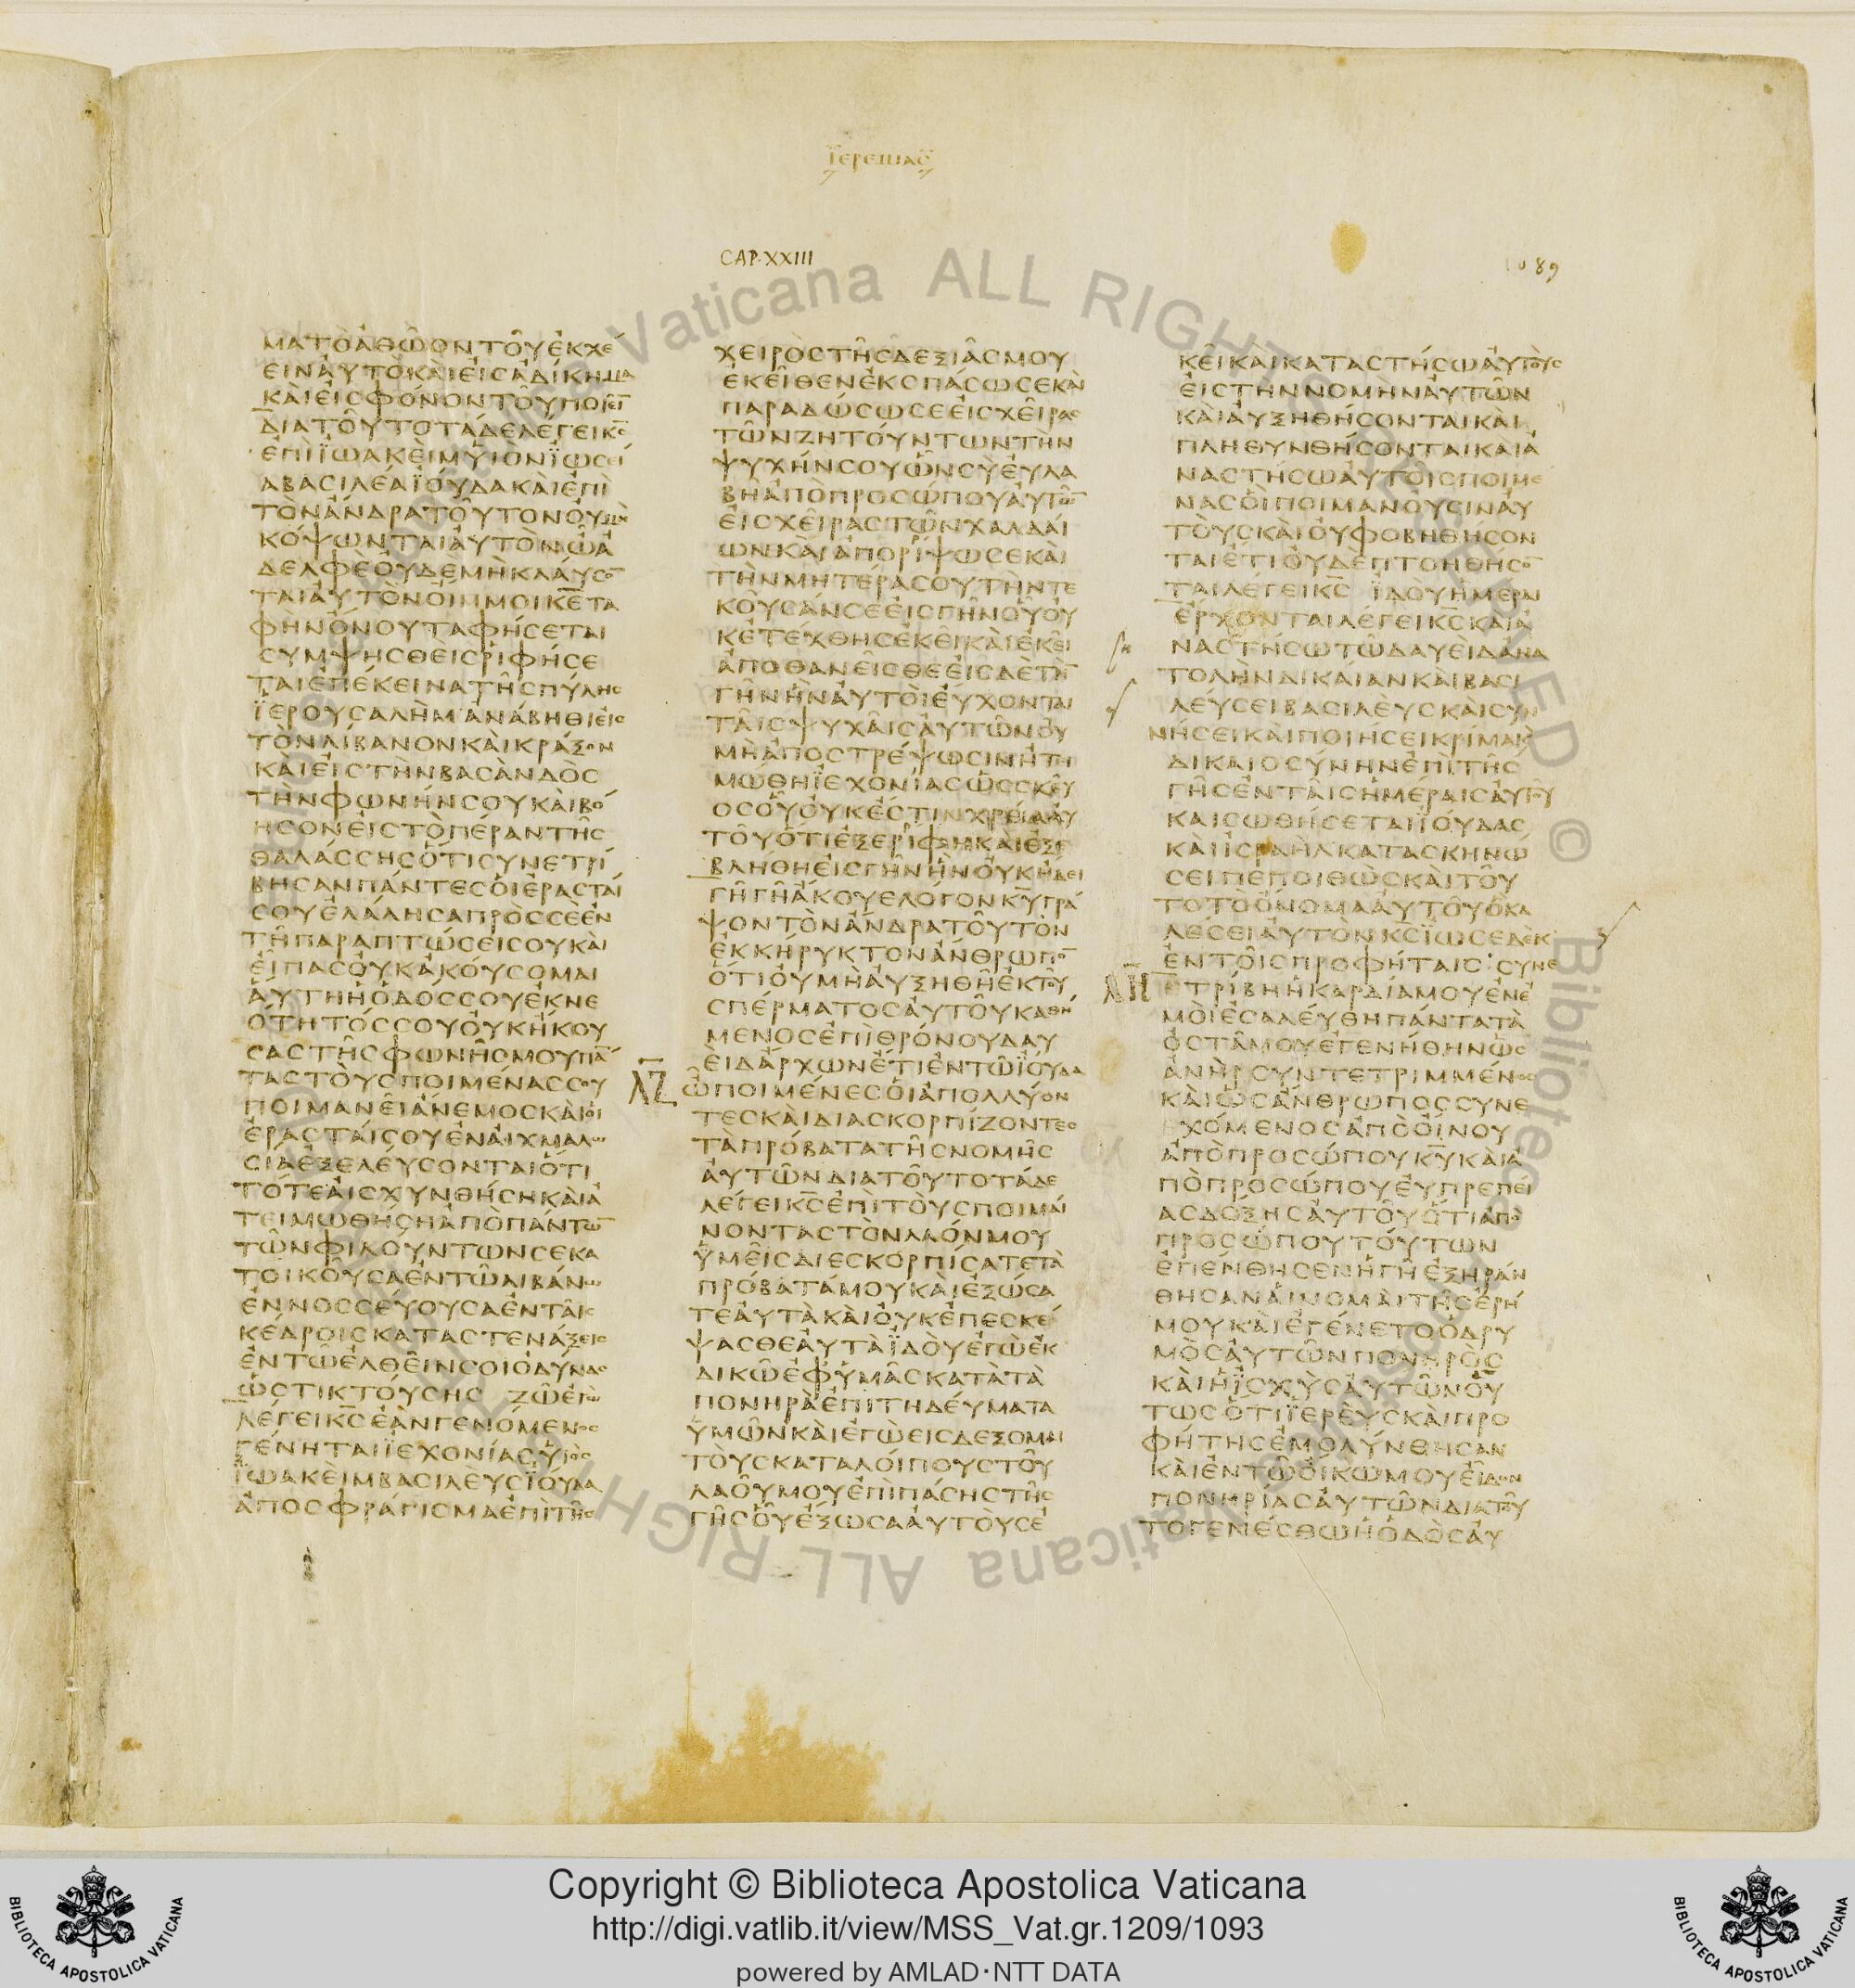 ΪΕΡΕΜΙΑΣ
CAP. XXIII
1089
ΜΑΤΟΑΘΩΟΝΤΟΥΕΚΧΕ
ΕΙΝΑΥΤΟΚΑΙΕΙΣΑΔΙΚΗΜΑ
ΚΑΙΕΙΣΦΟΝΟΝΤΟΥΠΟΙΕΙ̅
ΔΙΑΤΟΥΤΟΤΑΔΕΛΕΓΕΙΚ̅Σ̅
ΕΠΙΪΩΑΚΕΙΜΥΙΟΝΪΩΣΕΙ
ΑΒΑΣΙΛΕΑΪΟΥΔΑΚΑΙΕΠΙ
ΤΟΝΑΝΔΡΑΤΟΥΤΟΝΟΥΜΗ
ΚΟΨΩΝΤΑΙΑΥΤΟΝΩΑ
ΔΕΛΦΕΟΥΔΕΜΗΚΛΑΥΣΟ̅
ΤΑΙΑΥΤΟΝΟΙΜΜΟΙΚ̅Ε̅ΤΑ
ΦΗΝΟΝΟΥΤΑΦΗΣΕΤΑΙ
ΣΥΜΨΗΣΘΕΙΣΡΙΦΗΣΕ
ΤΑΙΕΠΕΚΕΙΝΑΤΗΣΠΥΛΗΣ
ΪΕΡΟΥΣΑΛΗΜΑΝΑΒΗΘΙΕΙΣ
ΤΟΝΛΙΒΑΝΟΝΚΑΙΚΡΑΞΟΝ
ΚΑΙΕΙΣΤΗΝΒΑΣΑΝΔΟΣ
ΤΗΝΦΩΝΗΝΣΟΥΚΑΙΒΟ
ΗΣΟΝΕΙΣΤΟΠΕΡΑΝΤΗΣ
ΘΑΛΑΣΣΗΣΟΤΙΣΥΝΕΤΡΙ
ΒΗΣΑΝΠΑΝΤΕΣΟΙΕΡΑΣΤΑΙ
ΣΟΥΕΛΑΛΗΣΑΠΡΟΣΣΕΕΝ
ΤΗΠΑΡΑΠΤΩΣΕΙΣΟΥΚΑΙ
ΕΙΠΑΣΟΥΚΑΚΟΥΣΟΜΑΙ
ΑΥΤΗΗΟΔΟΣΣΟΥΕΚΝΕ
ΟΤΗΤΟΣΣΟΥΟΥΚΗΚΟΥ
ΣΑΣΤΗΣΦΩΝΗΣΜΟΥΠΑ̅
ΤΑΣΤΟΥΣΠΟΙΜΕΝΑΣΣΟΥ
ΠΟΙΜΑΝΕΙΑΝΕΜΟΣΚΑΙΟΙ
ΕΡΑΣΤΑΙΣΟΥΕΝΑΙΧΜΑΛΩ
ΣΙΑΕΞΕΛΕΥΣΟΝΤΑΙΟΤΙ
ΤΟΤΕΑΙΣΧΥΝΘΗΣΗΚΑΙΑ
ΤΕΙΜΩΘΗΣΗΑΠΟΠΑΝΤΩ̅
ΤΩΝΦΙΛΟΥΝΤΩΝΣΕΚΑ
ΤΟΙΚΟΥΣΑΕΝΤΩΛΙΒΑΝΩ
ΕΝΝΟΣΣΕΥΟΥΣΑΕΝΤΑΙΣ
ΚΕΔΡΟΙΣΚΑΤΑΣΤΕΝΑΞΕΙΣ
ΕΝΤΩΕΛΘΕΙΝΣΟΙΟΔΥΝΑΣ
ΩΣΤΙΚΤΟΥΣΗΣ ΖΩΕΓΩ
ΛΕΓΕΙΚ̅Σ̅ΕΑΝΓΕΝΟΜΕΝΟΣ
ΓΕΝΗΤΑΙΪΕΧΟΝΙΑΣΥΙΟΣ
ΪΩΑΚΕΙΜΒΑΣΙΛΕΥΣΪΟΥΔΑ
ΑΠΟΣΦΡΑΓΙΣΜΑΕΠΙΤΗΣ
ΧΕΙΡΟΣΤΗΣΔΕΞΙΑΣΜΟΥ
ΕΚΕΙΘΕΝΕΚΣΠΑΣΩΣΕΚΑΙ
ΠΑΡΑΔΩΣΩΣΕΕΙΣΧΕΙΡΑΣ
ΤΩΝΖΗΤΟΥΝΤΩΝΤΗΝ
ΨΥΧΗΝΣΟΥΩΝΣΥΕΥΛΑ
ΒΗΑΠΟΠΡΟΣΩΠΟΥΑΥΤΩ̅
ΕΙΣΧΕΙΡΑΣΤΩΝΧΑΛΔΑΙ
ΩΝΚΑΙΑΠΟΡΙΨΩΣΕΚΑΙ
ΤΗΝΜΗΤΕΡΑΣΟΥΤΗΝΤΕ
ΚΟΥΣΑΝΣΕΕΙΣΓΗΝΟΥΟΥ
ΚΕΤΕΧΘΗΣΕΚΕΙΚΑΙΕΚΕΙ
ΑΠΟΘΑΝΕΙΣΘΕΕΙΣΔΕΤΗ̅
ΓΗΝΗΝΑΥΤΟΙΕΥΧΟΝΤΑΙ
ΤΑΙΣΨΥΧΑΙΣΑΥΤΩΝΟΥ
ΜΗΑΠΟΣΤΡΕΨΩΣΙΝΗΤΙ
ΜΩΘΗΪΕΧΟΝΙΑΣΩΣΣΚΕΥ
ΟΣΟΥΟΥΚΕΣΤΙΝΧΡΕΙΑΑΥ
ΤΟΥΟΤΙΕΞΕΡΙΦΗΚΑΙΕΞΕ
ΒΛΗΘΗΕΙΣΓΗΝΗΝΟΥΚΗΔΕΙ
ΓΗΓΗΑΚΟΥΕΛΟΓΟΝΚ̅Υ̅ΓΡΑ
ΨΟΝΤΟΝΑΝΔΡΑΤΟΥΤΟΝ
ΕΚΚΗΡΥΚΤΟΝΑΝΘΡΩΠΟ̅
ΟΤΙΟΥΜΗΑΥΞΗΘΗΕΚΤΟΥ
ΣΠΕΡΜΑΤΟΣΑΥΤΟΥΚΑΘΗ
ΜΕΝΟΣΕΠΙΘΡΟΝΟΥΔΑΥ
ΕΙΔΑΡΧΩΝΕΤΙΕΝΤΩΪΟΥΔΑ
ΛΖ ΩΠΟΙΜΕΝΕΣΟΙΑΠΟΛΛΥΟΝ
ΤΕΣΚΑΙΔΙΑΣΚΟΡΠΙΖΟΝΤΕΣ
ΤΑΠΡΟΒΑΤΑΤΗΣΝΟΜΗΣ
ΑΥΤΩΝΔΙΑΤΟΥΤΟΤΑΔΕ
ΛΕΓΕΙΚ̅Σ̅ΕΠΙΤΟΥΣΠΟΙΜΑΙ
ΝΟΝΤΑΣΤΟΝΛΑΟΝΜΟΥ
ΫΜΕΙΣΔΙΕΣΚΟΡΠΙΣΑΤΕΤΑ
ΠΡΟΒΑΤΑΜΟΥΚΑΙΕΞΩΣΑ
ΤΕΑΥΤΑΚΑΙΟΥΚΕΠΕΣΚΕ
ΨΑΣΘΕΑΥΤΑΪΔΟΥΕΓΩΕΚ
ΔΙΚΩΕΦΥΜΑΣΚΑΤΑΤΑ
ΠΟΝΗΡΑΕΠΙΤΗΔΕΥΜΑΤΑ
ΫΜΩΝΚΑΙΕΓΩΕΙΣΔΕΞΟΜΑΙ
ΤΟΥΣΚΑΤΑΛΟΙΠΟΥΣΤΟΥ
ΛΑΟΥΜΟΥΕΠΙΠΑΣΗΣΤΗΣ
ΓΗΣΟΥΕΞΩΣΑΑΥΤΟΥΣΕ
ΚΕΙΚΑΙΚΑΤΑΣΤΗΣΩΑΥΤΟΥΣ
ΕΙΣΤΗΝΝΟΜΗΝΑΥΤΩΝ
ΚΑΙΑΥΞΗΘΗΣΟΝΤΑΙΚΑΙ
ΠΛΗΘΥΝΘΗΣΟΝΤΑΙΚΑΙΑ
ΝΑΣΤΗΣΩΑΥΤΟΙΣΠΟΙΜΕ
ΝΑΣΟΙΠΟΙΜΑΝΟΥΣΙΝΑΥ
ΤΟΥΣΚΑΙΟΥΦΟΒΗΘΗΣΟΝ
ΤΑΙΕΤΙΟΥΔΕΠΤΟΗΘΗΣΟ̅
ΤΑΙΛΕΓΕΙΚ̅Σ̅ ΪΔΟΥΗΜΕΡΑΙ
ΕΡΧΟΝΤΑΙΛΕΓΕΙΚ̅Σ̅ΚΑΙΑ
ΝΑΣΤΗΣΩΤΩΔΑΥΕΙΔΑΝΑ
ΤΟΛΗΝΔΙΚΑΙΑΝΚΑΙΒΑΣΙ
ΛΕΥΣΕΙΒΑΣΙΛΕΥΣΚΑΙΣΥΝ
ΝΗΣΕΙΚΑΙΠΟΙΗΣΕΙΚΡΙΜΑΚΑΙ
ΔΙΚΑΙΟΣΥΝΗΝΕΠΙΤΗΣ
ΓΗΣΕΝΤΑΙΣΗΜΕΡΑΙΣΑΥΤΟΥ
ΚΑΙΣΩΘΗΣΕΤΑΙΪΟΥΔΑΣ
ΚΑΙΙΣΡΑΗΛΚΑΤΑΣΚΗΝΩ
ΣΕΙΠΕΠΟΙΘΩΣΚΑΙΤΟΥ
ΤΟΤΟΟΝΟΜΑΑΥΤΟΥΟΚΑ
ΛΕΣΕΙΑΥΤΟΝΚ̅Σ̅ΪΩΣΕΔΕΚ
ΕΝΤΟΙΣΠΡΟΦΗΤΑΙΣ·ΣΥΝΕ
ΛΗ ΕΤΡΙΒΗΗΚΑΡΔΙΑΜΟΥΕΝΕ
ΜΟΙΕΣΑΛΕΥΘΗΠΑΝΤΑΤΑ
ΟΣΤΑΜΟΥΕΓΕΝΗΘΗΝΩΣ
ΑΝΗΡΣΥΝΤΕΤΡΙΜΜΕΝΟΣ
ΚΑΙΩΣΑΝΘΡΩΠΟΣΣΥΝΕ
ΧΟΜΕΝΟΣΑΠΟΟΙΝΟΥ
ΑΠΟΠΡΟΣΩΠΟΥΚ̅Υ̅ΚΑΙΑ
ΠΟΠΡΟΣΩΠΟΥΕΥΠΡΕΠΕΙ
ΑΣΔΟΞΗΣΑΥΤΟΥΟΤΙΑΠΟ
ΠΡΟΣΩΠΟΥΤΟΥΤΩΝ
ΕΠΕΝΘΗΣΕΝΗΓΗΕΞΗΡΑΝ
ΘΗΣΑΝΑΙΝΟΜΑΙΤΗΣΕΡΗ
ΜΟΥΚΑΙΕΓΕΝΕΤΟΟΔΡΥ
ΜΟΣΑΥΤΩΝΠΟΝΗΡΟΣ
ΚΑΙΗΪΣΧΥΣΑΥΤΩΝΟΥ
ΤΩΣΟΤΙΪΕΡΕΥΣΚΑΙΠΡΟ
ΦΗΤΗΣΕΜΟΛΥΝΘΗΣΑΝ
ΚΑΙΕΝΤΩΟΙΚΩΜΟΥΕΙΔΟΝ
ΠΟΝΗΡΙΑΣΑΥΤΩΝΔΙΑΤΟΥ
ΤΟΓΕΝΕΣΘΩΗΟΔΟΣΑΥ
Vaticana ALL RIGHTS RESERVED © Biblioteca
Vaticana ALL RIGH
Copyright © Biblioteca Apostolica Vaticana
http://digi.vatlib.it/view/MSS_Vat.gr.1209/1093
powered by AMLAD·NTT DATA
BIBLIOTECA APOSTOLICA VATICANA
BIBLIOTECA APOSTOLICA VATICANA